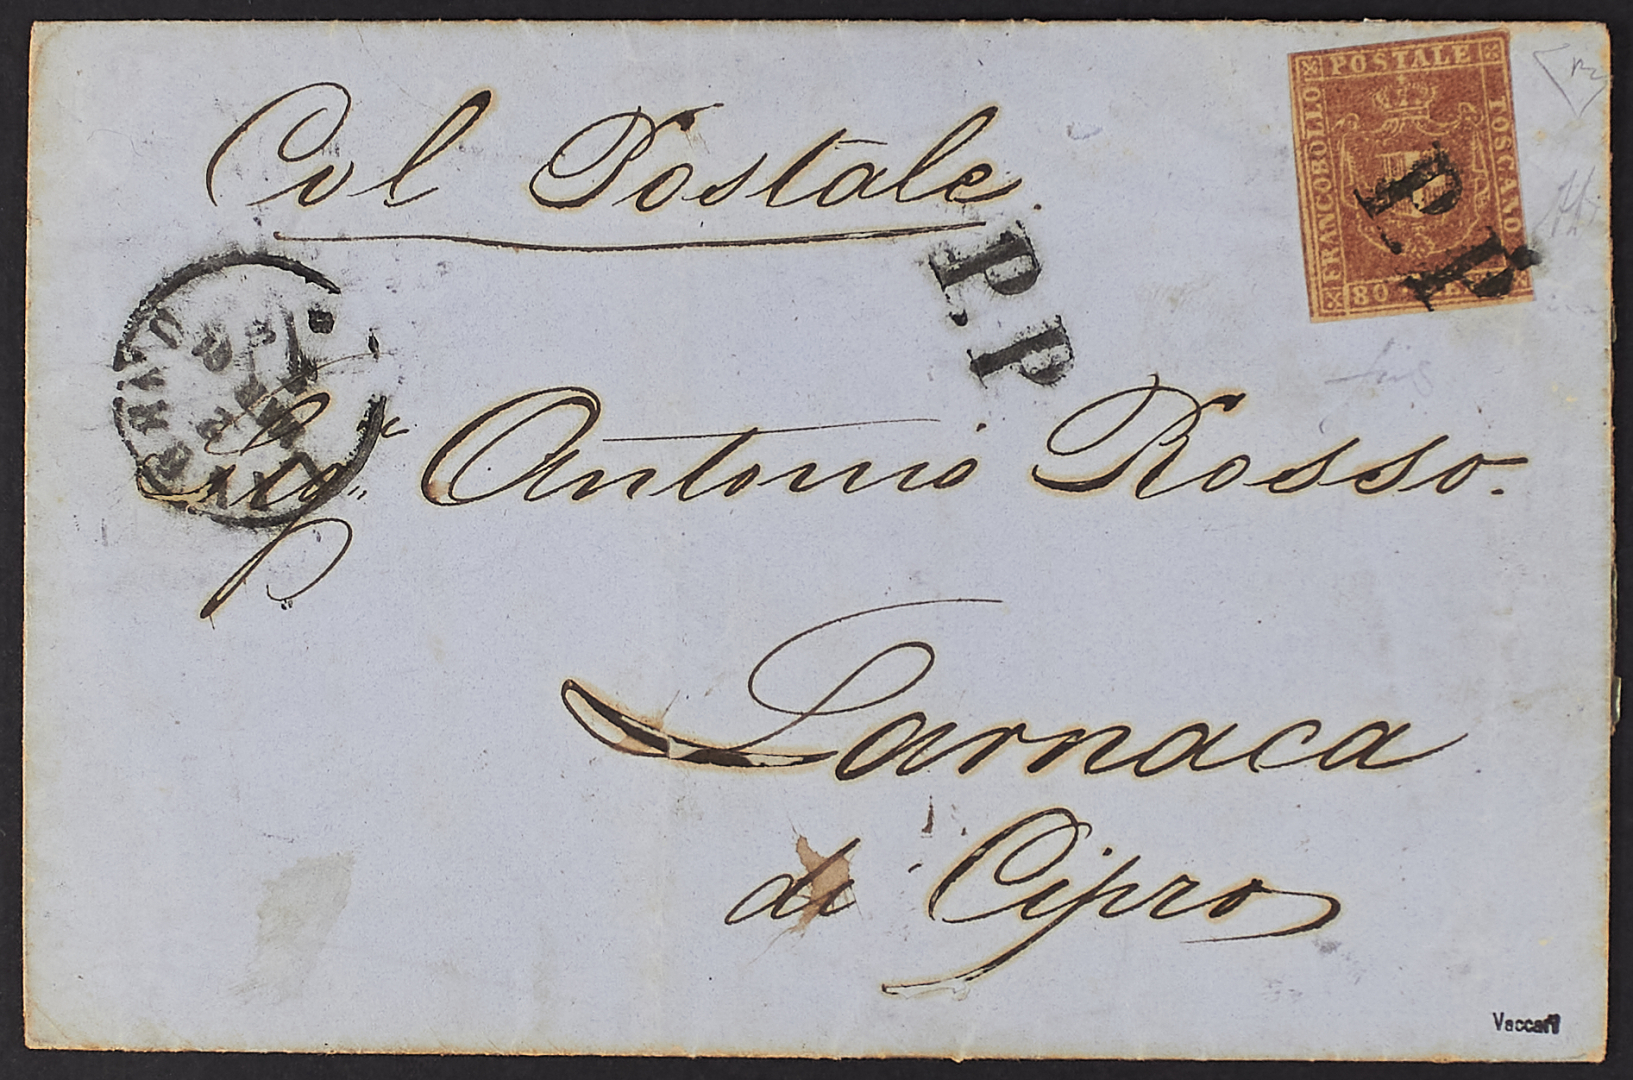 Col Postale.
FRANCOBOLLO POSTALE TOSCANO
80
P.P.
P.P
Sig.r Antonio Rosso.
Larnaca
di Cipro
Vaccari